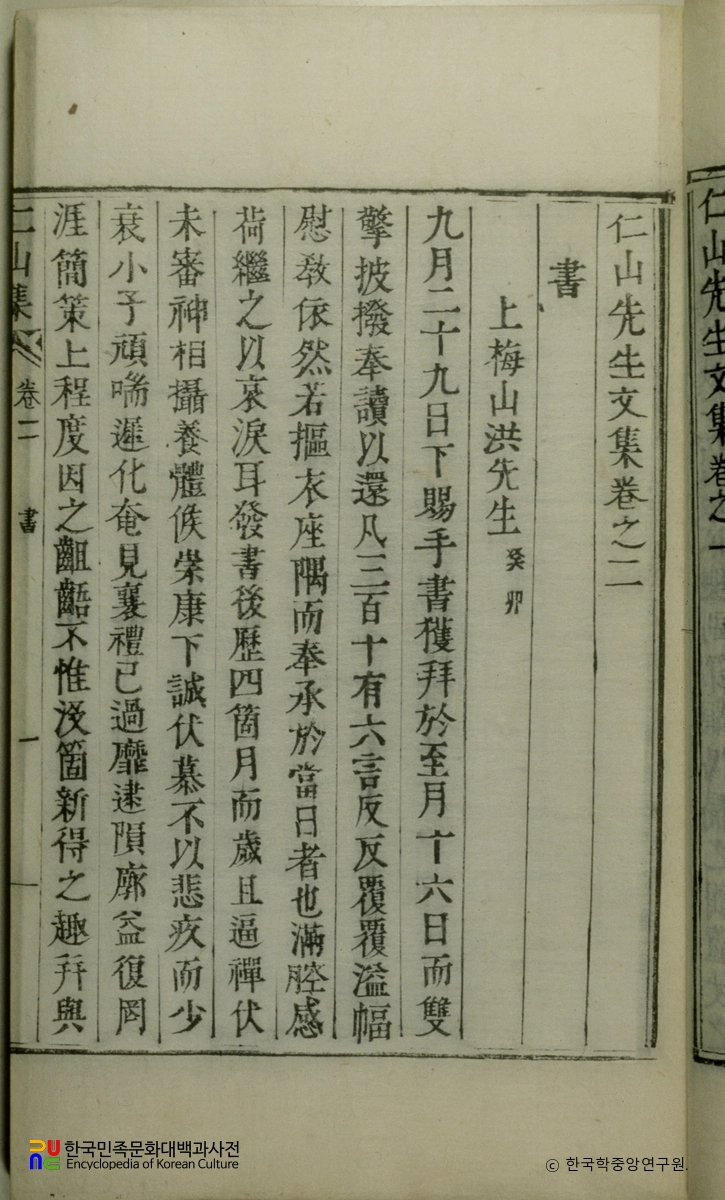 仁山先生文集卷之一
仁山先生文集卷之二
書
上梅山洪先生 癸卯
九月二十九日下賜手書獲拜於至月十六日而雙
擎披撥奉讀以還凡三百十有六言反反覆覆溢幅
慰敎依然若摳衣座隅而奉承於當日者也滿腔感
荷繼之以哀淚耳發書後歷四箇月而歲且逼禫伏
未審神相攝養體候崇康下誠伏慕不以悲疚而少
衰小子頑喘遲化奄見襄禮已過靡逮隕廓益復罔
涯簡策上程度因之齟齬不惟沒箇新得之趣幷與
仁山集 卷二 書 一
한국민족문화대백과사전
Encyclopedia of Korean Culture
ⓒ 한국학중앙연구원.